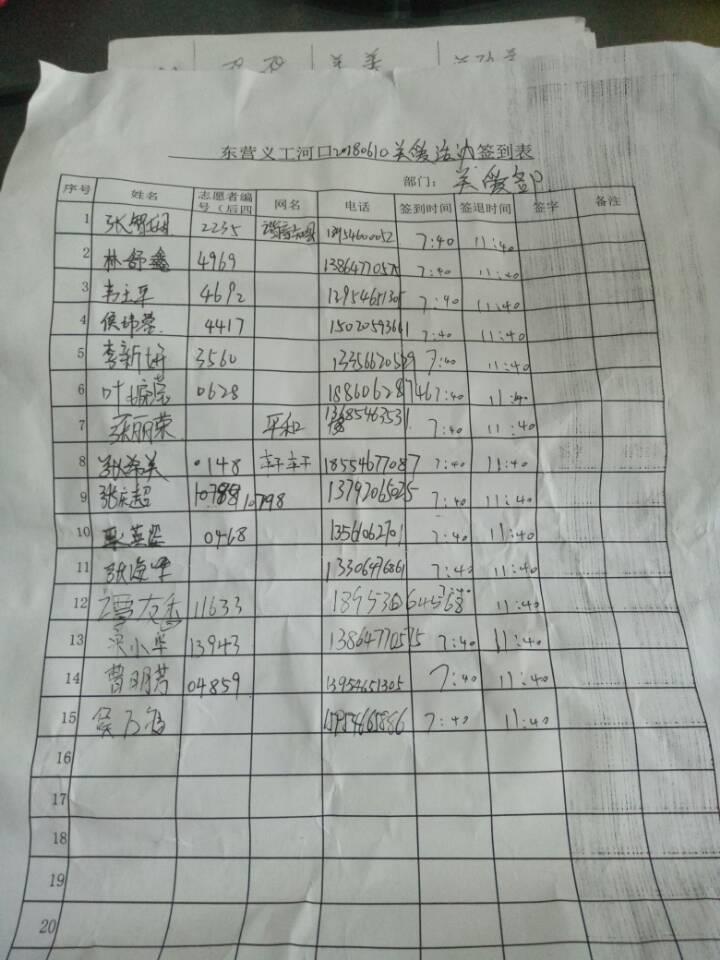 东营义工河口20180610关爱活动签到表
部门：关爱部
序号 姓名 志愿者编号（后四 网名 电话 签到时间 签退时间 签字 备注
1 2235 13954600052 7:40 11:40
2 林舒鑫 4969 13864770575 7:40 11:40
3 韦玉平 4692 13954651305 7:40 11:40
4 侯玮莹 4417 15020593641 7:40 11:40
5 李新妍 3560 13356620529 7:40 11:40
6 0628 18860628746 7:40 11:40
7 张丽荣 平和 13685463531 7:40 11:40
8 0148 轩轩 18554677087 7:40 11:40
9 张庆超 10798 13792065025 7:40 11:40
10 0468 13561062701 7:40 11:40
11 张海峰 13306476861 7:40 11:40
12 谭友香 11633 7:40 11:40
13 梁小华 13943 13864770575 7:40 11:40
14 曹明芳 04859 13954651305 7:40 11:40
15 15954665886 7:40 11:40
16
17
18
19
20